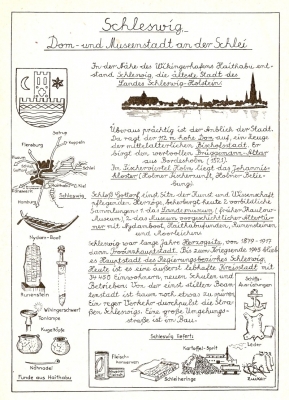 Schleswig
Dom- und Museenstadt an der Schlei
In der Nähe des Wikingerhafens Haithabu ent-
stand Schleswig, die älteste Stadt des
Landes Schleswig-Holstein.
Überaus prächtig ist der Anblick der Stadt.
Da ragt der 112 m hohe Dom auf, ein Zeuge
der mittelalterlichen Bischofsstadt. Er
birgt den wertvollen Brüggemann-Altar
aus Bordesholm (1521).
Im Fischerviertel Holm liegt das Johannis-
kloster (Remter, Kirchenruft, Holmer Beliebung)
Schloß Gottorf, einst Sitz der Kunst und Wissenschaft
pflegenden Herzöge, beherbergt heute 2 vorbildliche
Sammlungen: 1. das Landesmuseum (früher Thaulow-
Museum), 2. das Museum vorgeschichtlicher Altertümer
mit Nydamboot, Haithabufunden, Runensteinen
und Moorleichen.
Schleswig war lange Jahre Herzogssitz, von 1879 - 1917
dann Provinzhauptstadt. Bis zum Kriegsende 1945 blieb
es Hauptstadt des Regierungsbezirkes Schleswig.
Heute ist es eine äußerst lebhafte Kreisstadt mit
34 450 Einwohnern, neuen Schulen und
Betrieben. Von der einst stillen Beam-
tenstadt ist kaum noch etwas zu spüren.
Ein reger Verkehr durchpulst die Stra-
ßen Schleswigs. Eine große Umgehungs-
straße ist im Bau.
Flensburg
Kappeln
Husum
Kiel
Schleswig
Nydam-Boot
Runenstein
Wikingerschwert
Tonlampe
Kugeltopf
Nähnadel
Funde aus Haithabu
Schleswig liefert:
Fleisch-
konserven
Schleiheringe
Kartoffel-Sprit
Leder
Zucker